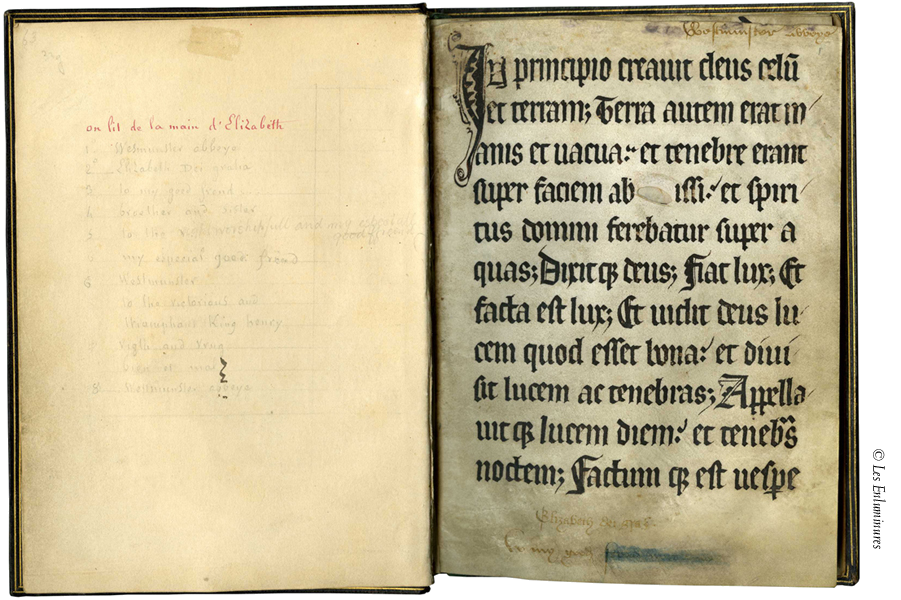 on lit de la main d'Elizabeth
1 Westminster abbeye
2° Elizabeth
3 to my good frend
4 broether and sister
5 to the
my especial good frend
6 Westminster
to the victorious and
triumphant King henry
8 Westminster abbeye
Westminster abbeye
In principio creauit deus celū
et terram; Terra autem erat in
anis et uacua: et tenebre erant
super faciem ab issi: et spiri
tus domini ferebatur super a
quas; Dixit q deus; Fiat lux; Et
facta est lux; Et uidit deus lu
cem quod esset bona: et diui
sit lucem ac tenebras; Appella
uit q lucem diem: et tenebs
noctem; Factum q est uespe
Elizabeth
to my
© Les Enluminures